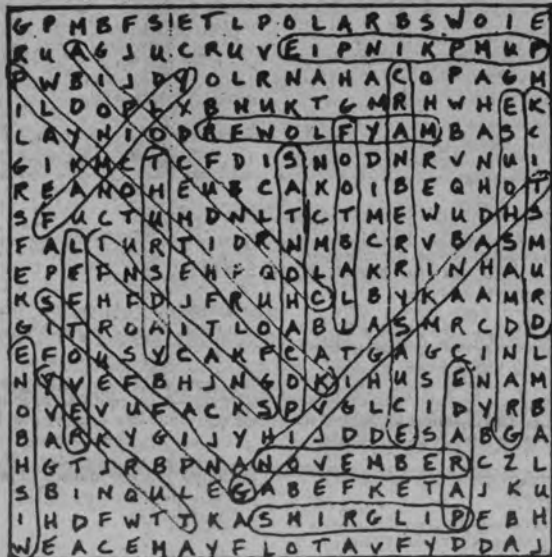 G P M B F S I E T L P O L A R B S W O I E
R U A G J U C R U V E I P N I K P M U P
P W B I J D Y O L R N A H A C O P A G M
I L D O P L X B H U K T G M R H W H E K
L A Y N I O D R E W O L F Y A M B A S C
G I K M C T C F D I S N O D N R V N U I
R E A N O H E U B C A K O I B E Q H O T
S F U C T U M D N L T C T M E W U D H S
F A L T U R T I D R N M B C R V B A S M
E P E F N S E H F Q O L A K R I N H A U
K S F H F D J F R U H C L B Y K A A M R
G I T R O A I T L O A B L A S M R C D D
E F O U S Y C A K F C A T G A G C I N L
N Y V E F B H J N G O K I H U S E N A M
O V E V U F A C K S P V G L C I D Y R B
B A R K Y G I J Y H I J D D E S A B G A
H G T J R B P N A N O V E M B E R C Z L
S B I N Q U L E G A B E F K E T A J K U
I H D F W T T K A S M I R G L I P E B H
W E A C E M A Y F L O T A V F Y D D A J